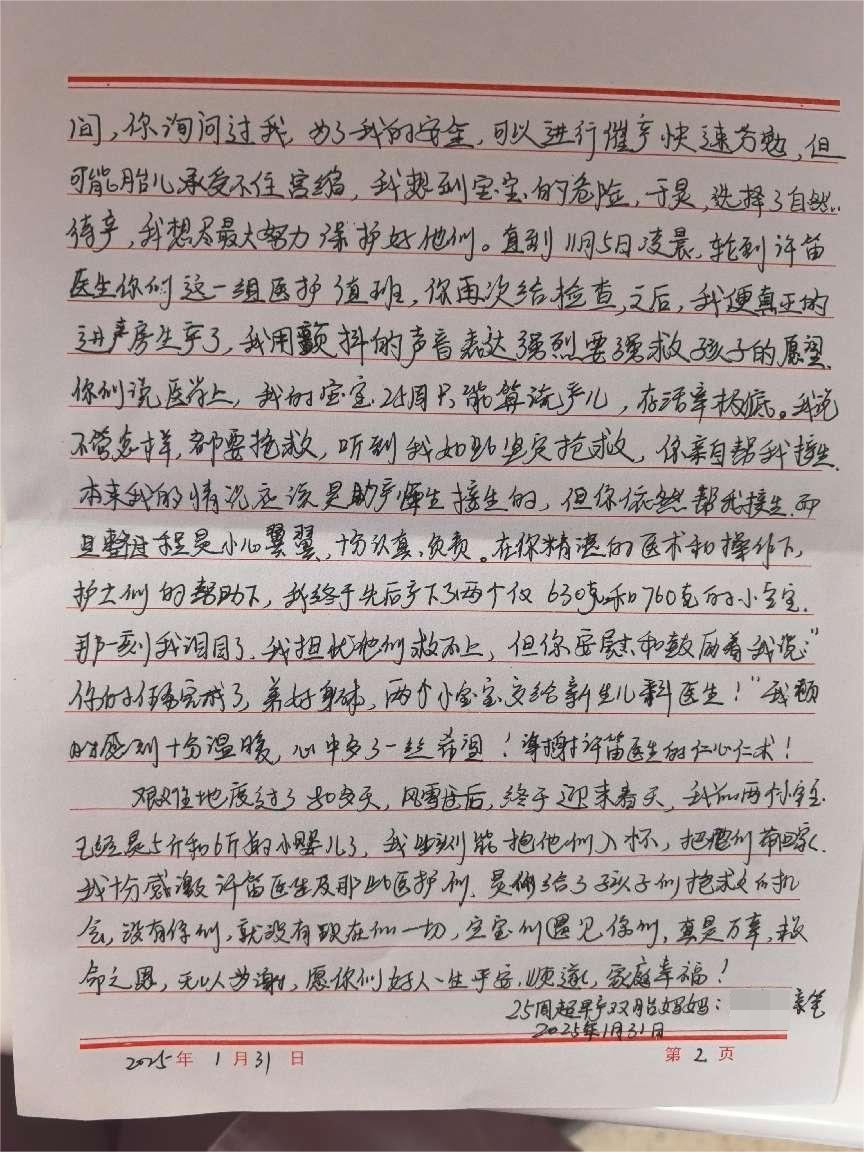 间，你询问过我，为了我的安全，可以进行催产快速分娩，但
可能胎儿承受不住宫缩，我想到宝宝的危险，于是，选择了自然
待产，我想尽最大努力保护好他们。直到11月5日凌晨，轮到许笛
医生你们这一组医护值班，你再次给检查，之后，我便真正的
进产房生产了，我用颤抖的声音表达强烈要强救孩子的愿望，
你们说医学上，我的宝宝25周只能算流产儿，存活率极底。我说
不管怎样，都要抢救，听到我如此坚定抢救，你亲自帮我接生，
本来我的情况应该是助产师生接生的，但你依然帮我接生，而
且整过程是小心翼翼，十分认真、负责。在你精湛的医术和操作下，
护士们的帮助下，我终于先后产下了两个仅630克和760克的小宝宝，
那一刻我泪目了，我担忧他们救不上，但你安慰和鼓励着我说：“
你的任务完成了，养好身体，两个小宝宝交给新生儿科医生！”我顿
时感到十分温暖，心中多了一丝希望！谢谢许笛医生的仁心仁术！
艰难地度过了80多天，风雪过后，终于迎来春天，我的两个小宝宝
已经是5斤和6斤的小婴儿了，我此刻能抱他们入怀，把他们带回家，
我十分感激许笛医生及那些医护们，是你们给了孩子们抢救的机
会，没有你们，就没有现在的一切，宝宝们遇见你们，真是万幸，救
命之恩，无以为谢，愿你们好人一生平安，顺遂，家庭幸福！
25周超早产双胎妈妈： 亲笔
2025年1月31日
2025年 1月31日 第2页